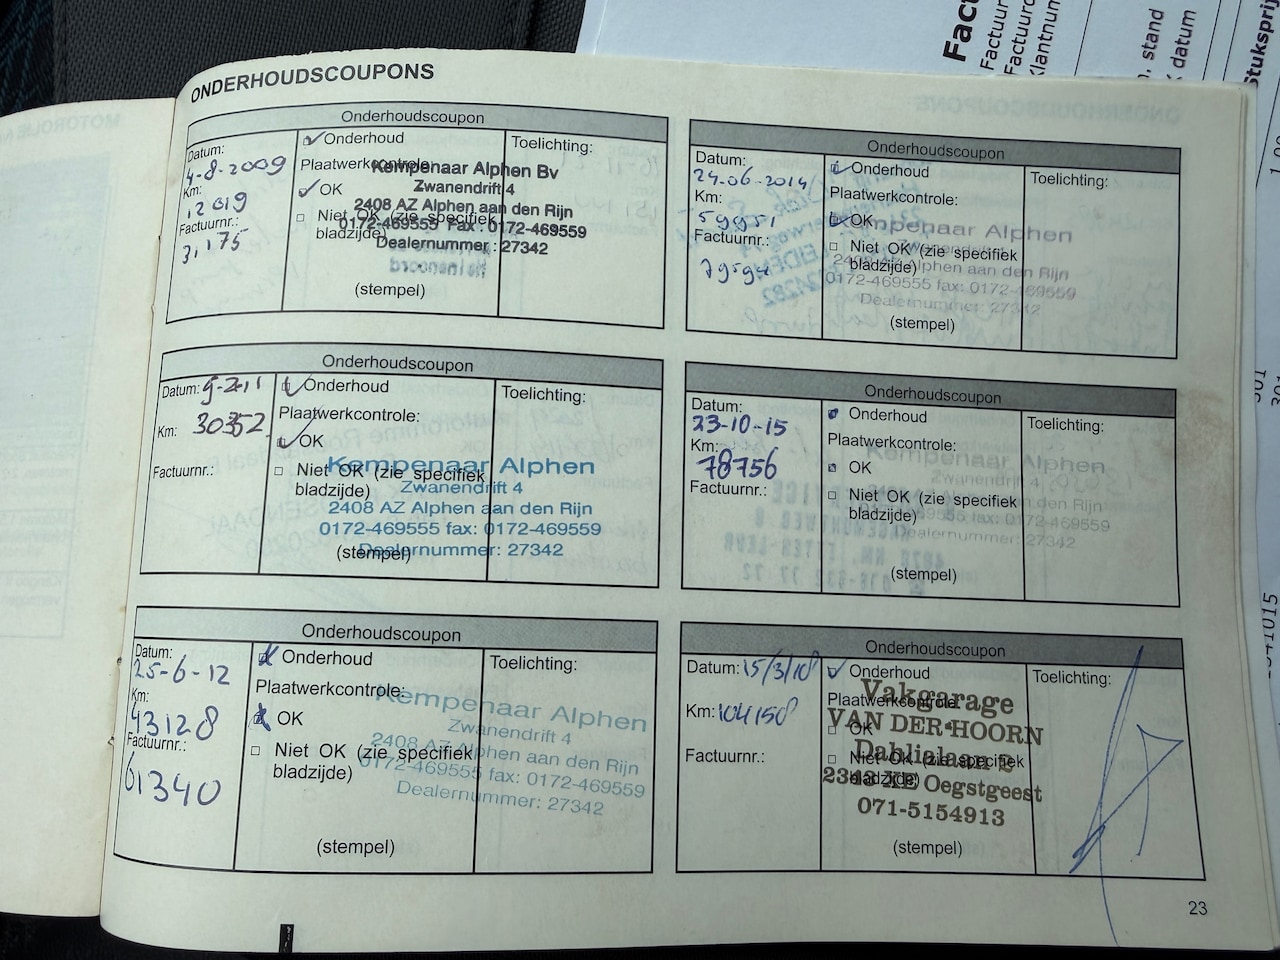 ONDERHOUDSCOUPONS
Onderhoudscoupon
Datum:
4-8-2009
Km:
12019
Factuurnr.:
31175
Onderhoud
Plaatwerkcontrole:
OK
Niet OK (zie specifiek
bladzijde)
(stempel)
Toelichting:
Kempenaar Alphen Bv
Zwanendrift 4
2408 AZ Alphen aan den Rijn
0172-469555 Fax : 0172-469559
Dealernummer : 27342
Onderhoudscoupon
Datum:
24-06-2014
Km:
59951
Factuurnr.:
Onderhoud
Plaatwerkcontrole:
OK
Niet OK (zie specifiek
bladzijde)
(stempel)
Toelichting:
Kempenaar Alphen
Zwanendrift 4
2408 AZ Alphen aan den Rijn
0172-469555 fax: 0172-469559
Dealernummer: 27342
Onderhoudscoupon
Datum: 9-2-11
Km: 30352
Factuurnr.:
Onderhoud
Plaatwerkcontrole:
OK
Niet OK (zie specifiek
bladzijde)
(stempel)
Toelichting:
Kempenaar Alphen
Zwanendrift 4
2408 AZ Alphen aan den Rijn
0172-469555 fax: 0172-469559
Dealernummer: 27342
Onderhoudscoupon
Datum:
23-10-15
Km:
78756
Factuurnr.:
Onderhoud
Plaatwerkcontrole:
OK
Niet OK (zie specifiek
bladzijde)
(stempel)
Toelichting:
Kempenaar Alphen
Zwanendrift 4
aan den Rijn
Dealernummer: 27342
Onderhoudscoupon
Datum:
25-6-12
Km:
43128
Factuurnr.:
61340
Onderhoud
Plaatwerkcontrole:
OK
Niet OK (zie specifiek
bladzijde)
(stempel)
Toelichting:
Kempenaar Alphen
Zwanendrift 4
2408 AZ Alphen aan den Rijn
0172-469555 fax: 0172-469559
Dealernummer: 27342
Onderhoudscoupon
Datum: 15/3/18
Km: 104158
Factuurnr.:
Onderhoud
Plaatwerkcontrole:
OK
Niet OK (zie specifiek
bladzijde)
(stempel)
Toelichting:
Vakgarage
VAN DER HOORN
Dahlialaan 2
2343 XE Oegstgeest
071-5154913
23
Fact
Factuur
Factuurd
Klantnum
stand
datum
Stuksprij